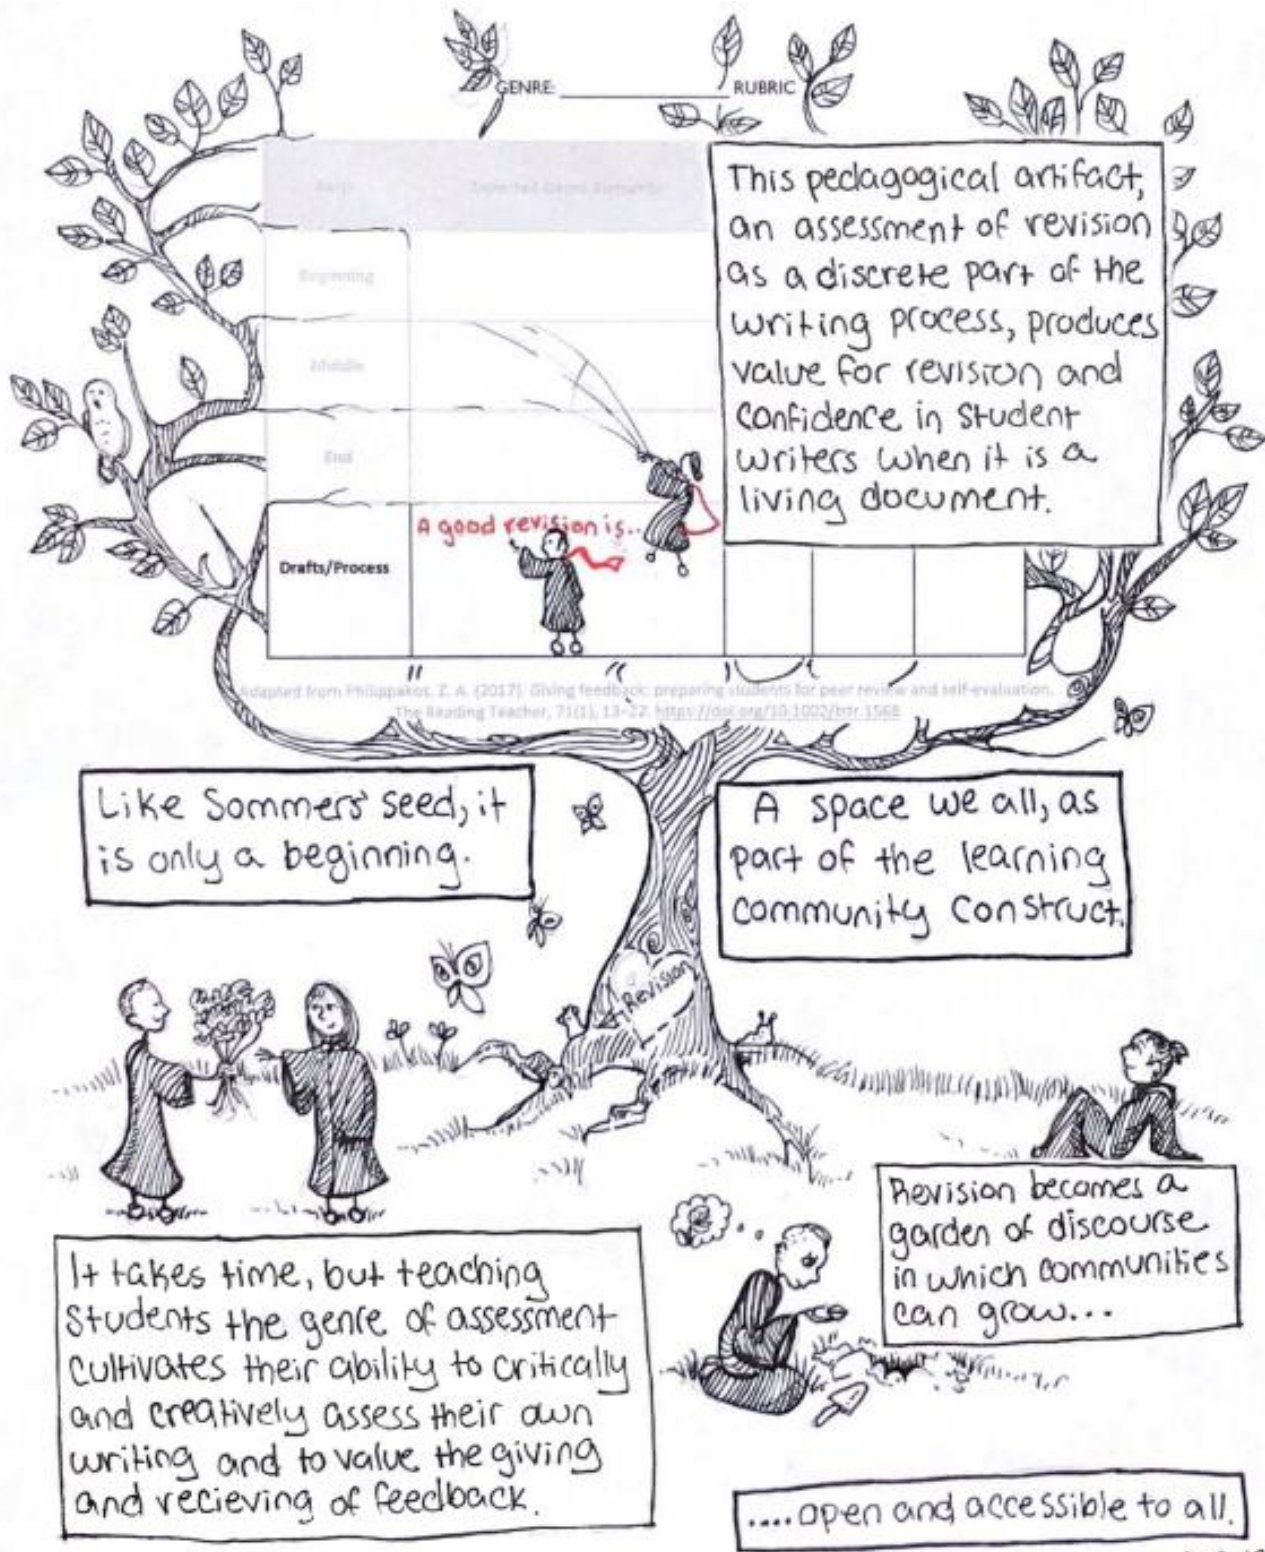 GENRE: ____________ RUBRIC
Parts Expected Genre Elements
Beginning
Middle
End
Drafts/Process
A good revision is...
This pedagogical artifact,
an assessment of revision
as a discrete part of the
writing process, produces
value for revision and
confidence in student
writers when it is a
living document.
Adapted from Philippakos, Z. A. (2017). Giving feedback: preparing students for peer review and self-evaluation.
The Reading Teacher, 71(1), 13-22. https://doi.org/10.1002/trtr.1568
Like Sommers' seed, it
is only a beginning.
A space we all, as
part of the learning
community construct.
Revision
It takes time, but teaching
students the genre of assessment
cultivates their ability to critically
and creatively assess their own
writing and to value the giving
and recieving of feedback.
Revision becomes a
garden of discourse
in which communities
can grow...
....open and accessible to all.